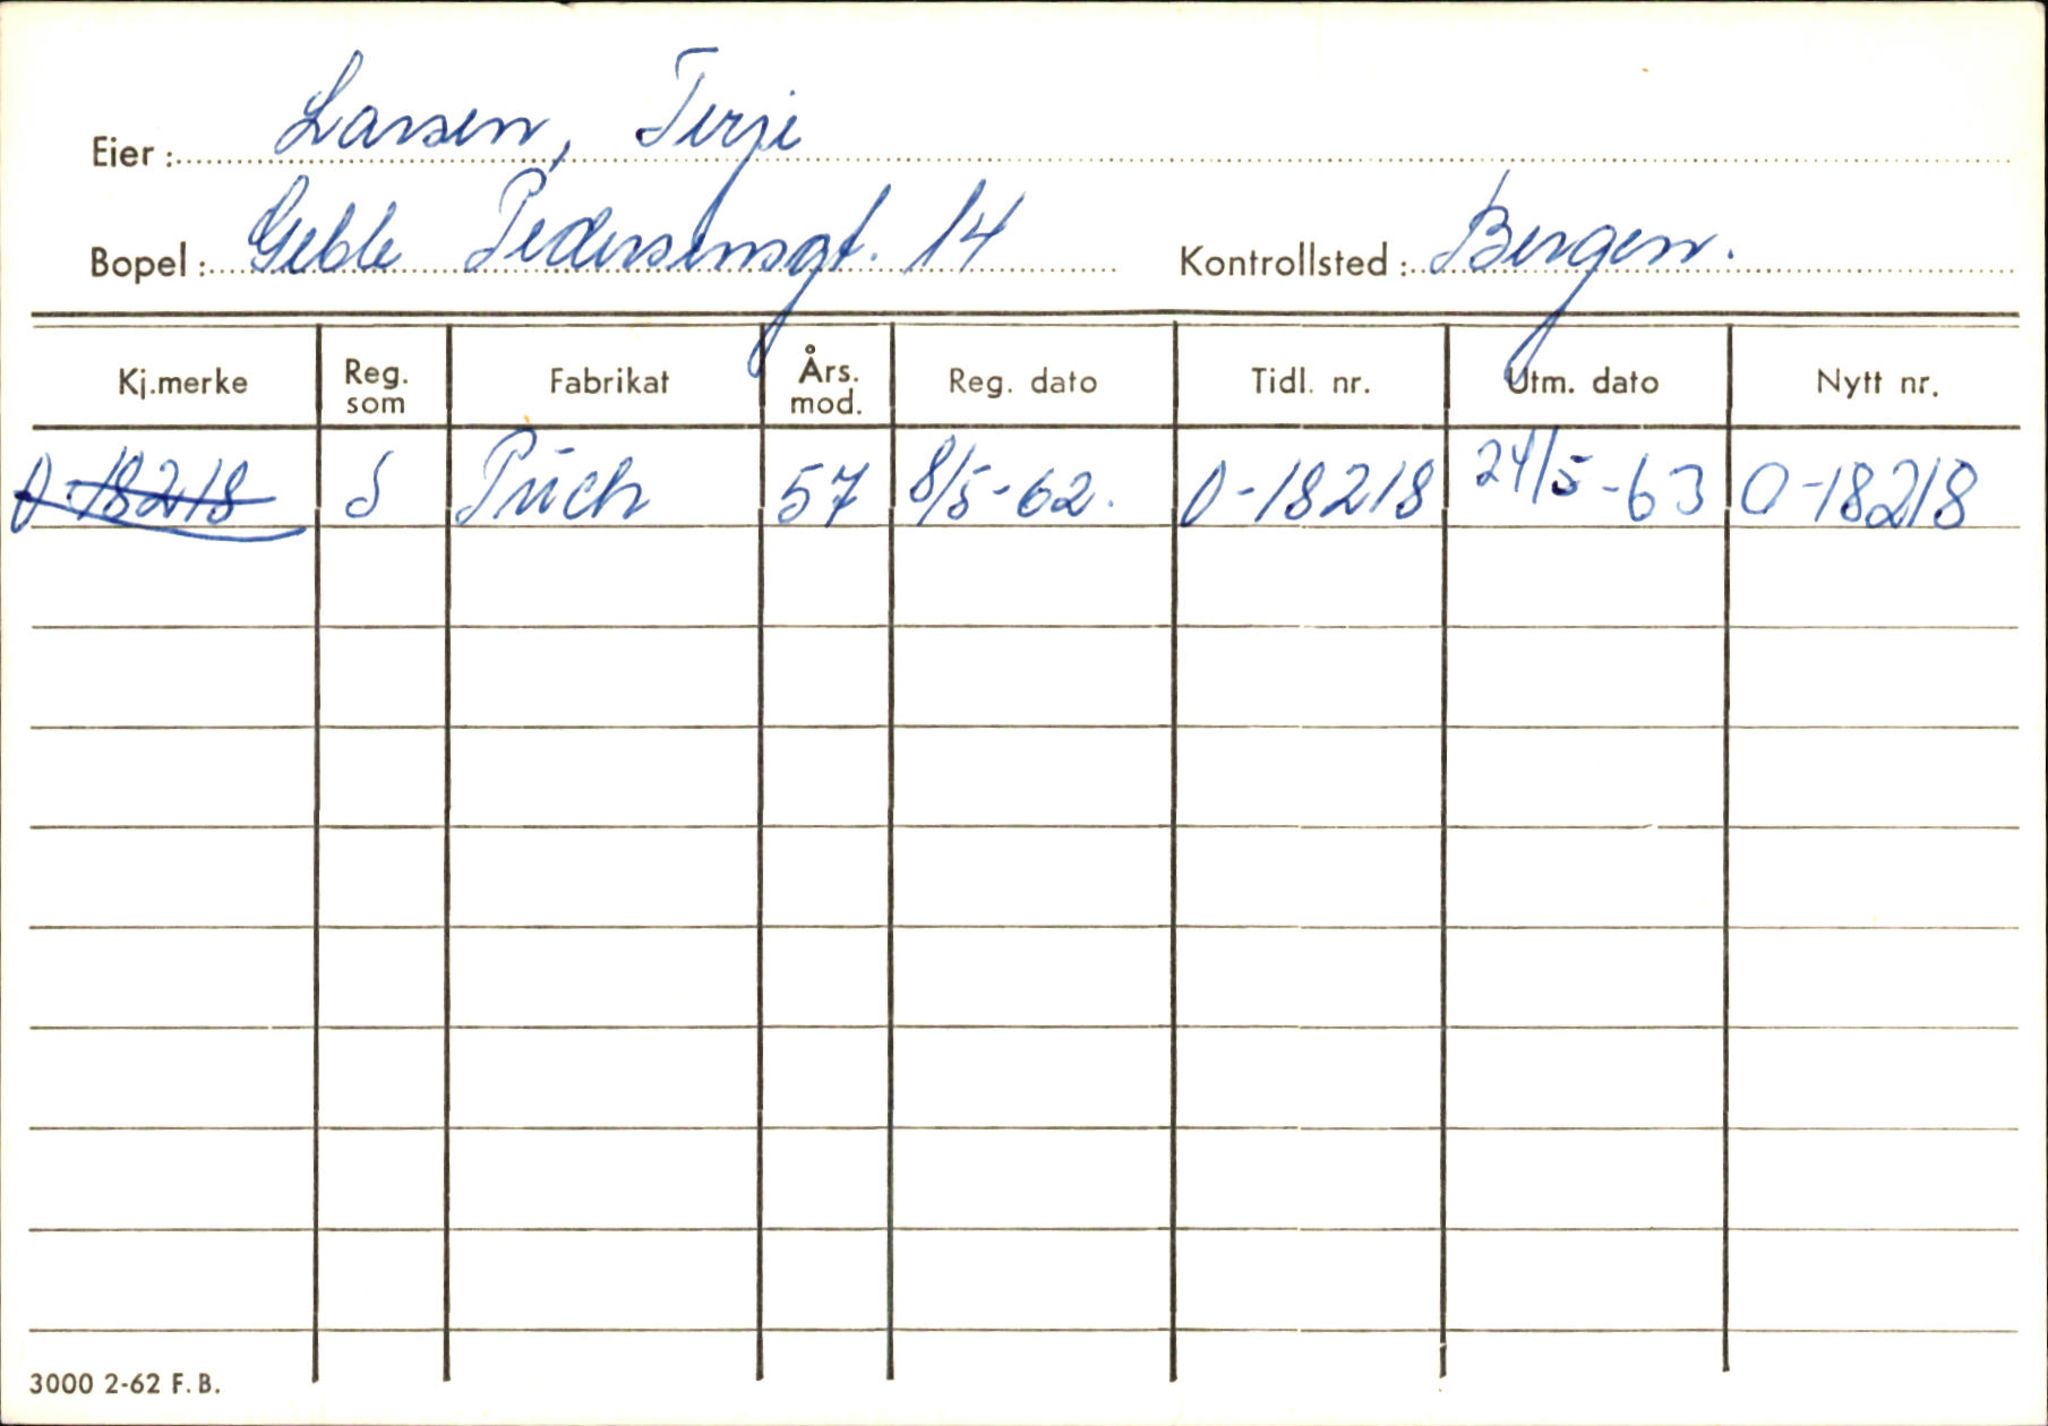 Eier: Larsen, Terje
Bopel: Geble Pedersensgt. 14 Kontrollsted: Bergen.
Kj.merke Reg. som Fabrikat Års. mod. Reg. dato Tidl. nr. Utm. dato Nytt nr.
O-18218 S Puch 57 8/5-62. O-18218 24/5-63 O-18218
3000 2-62 F.B.